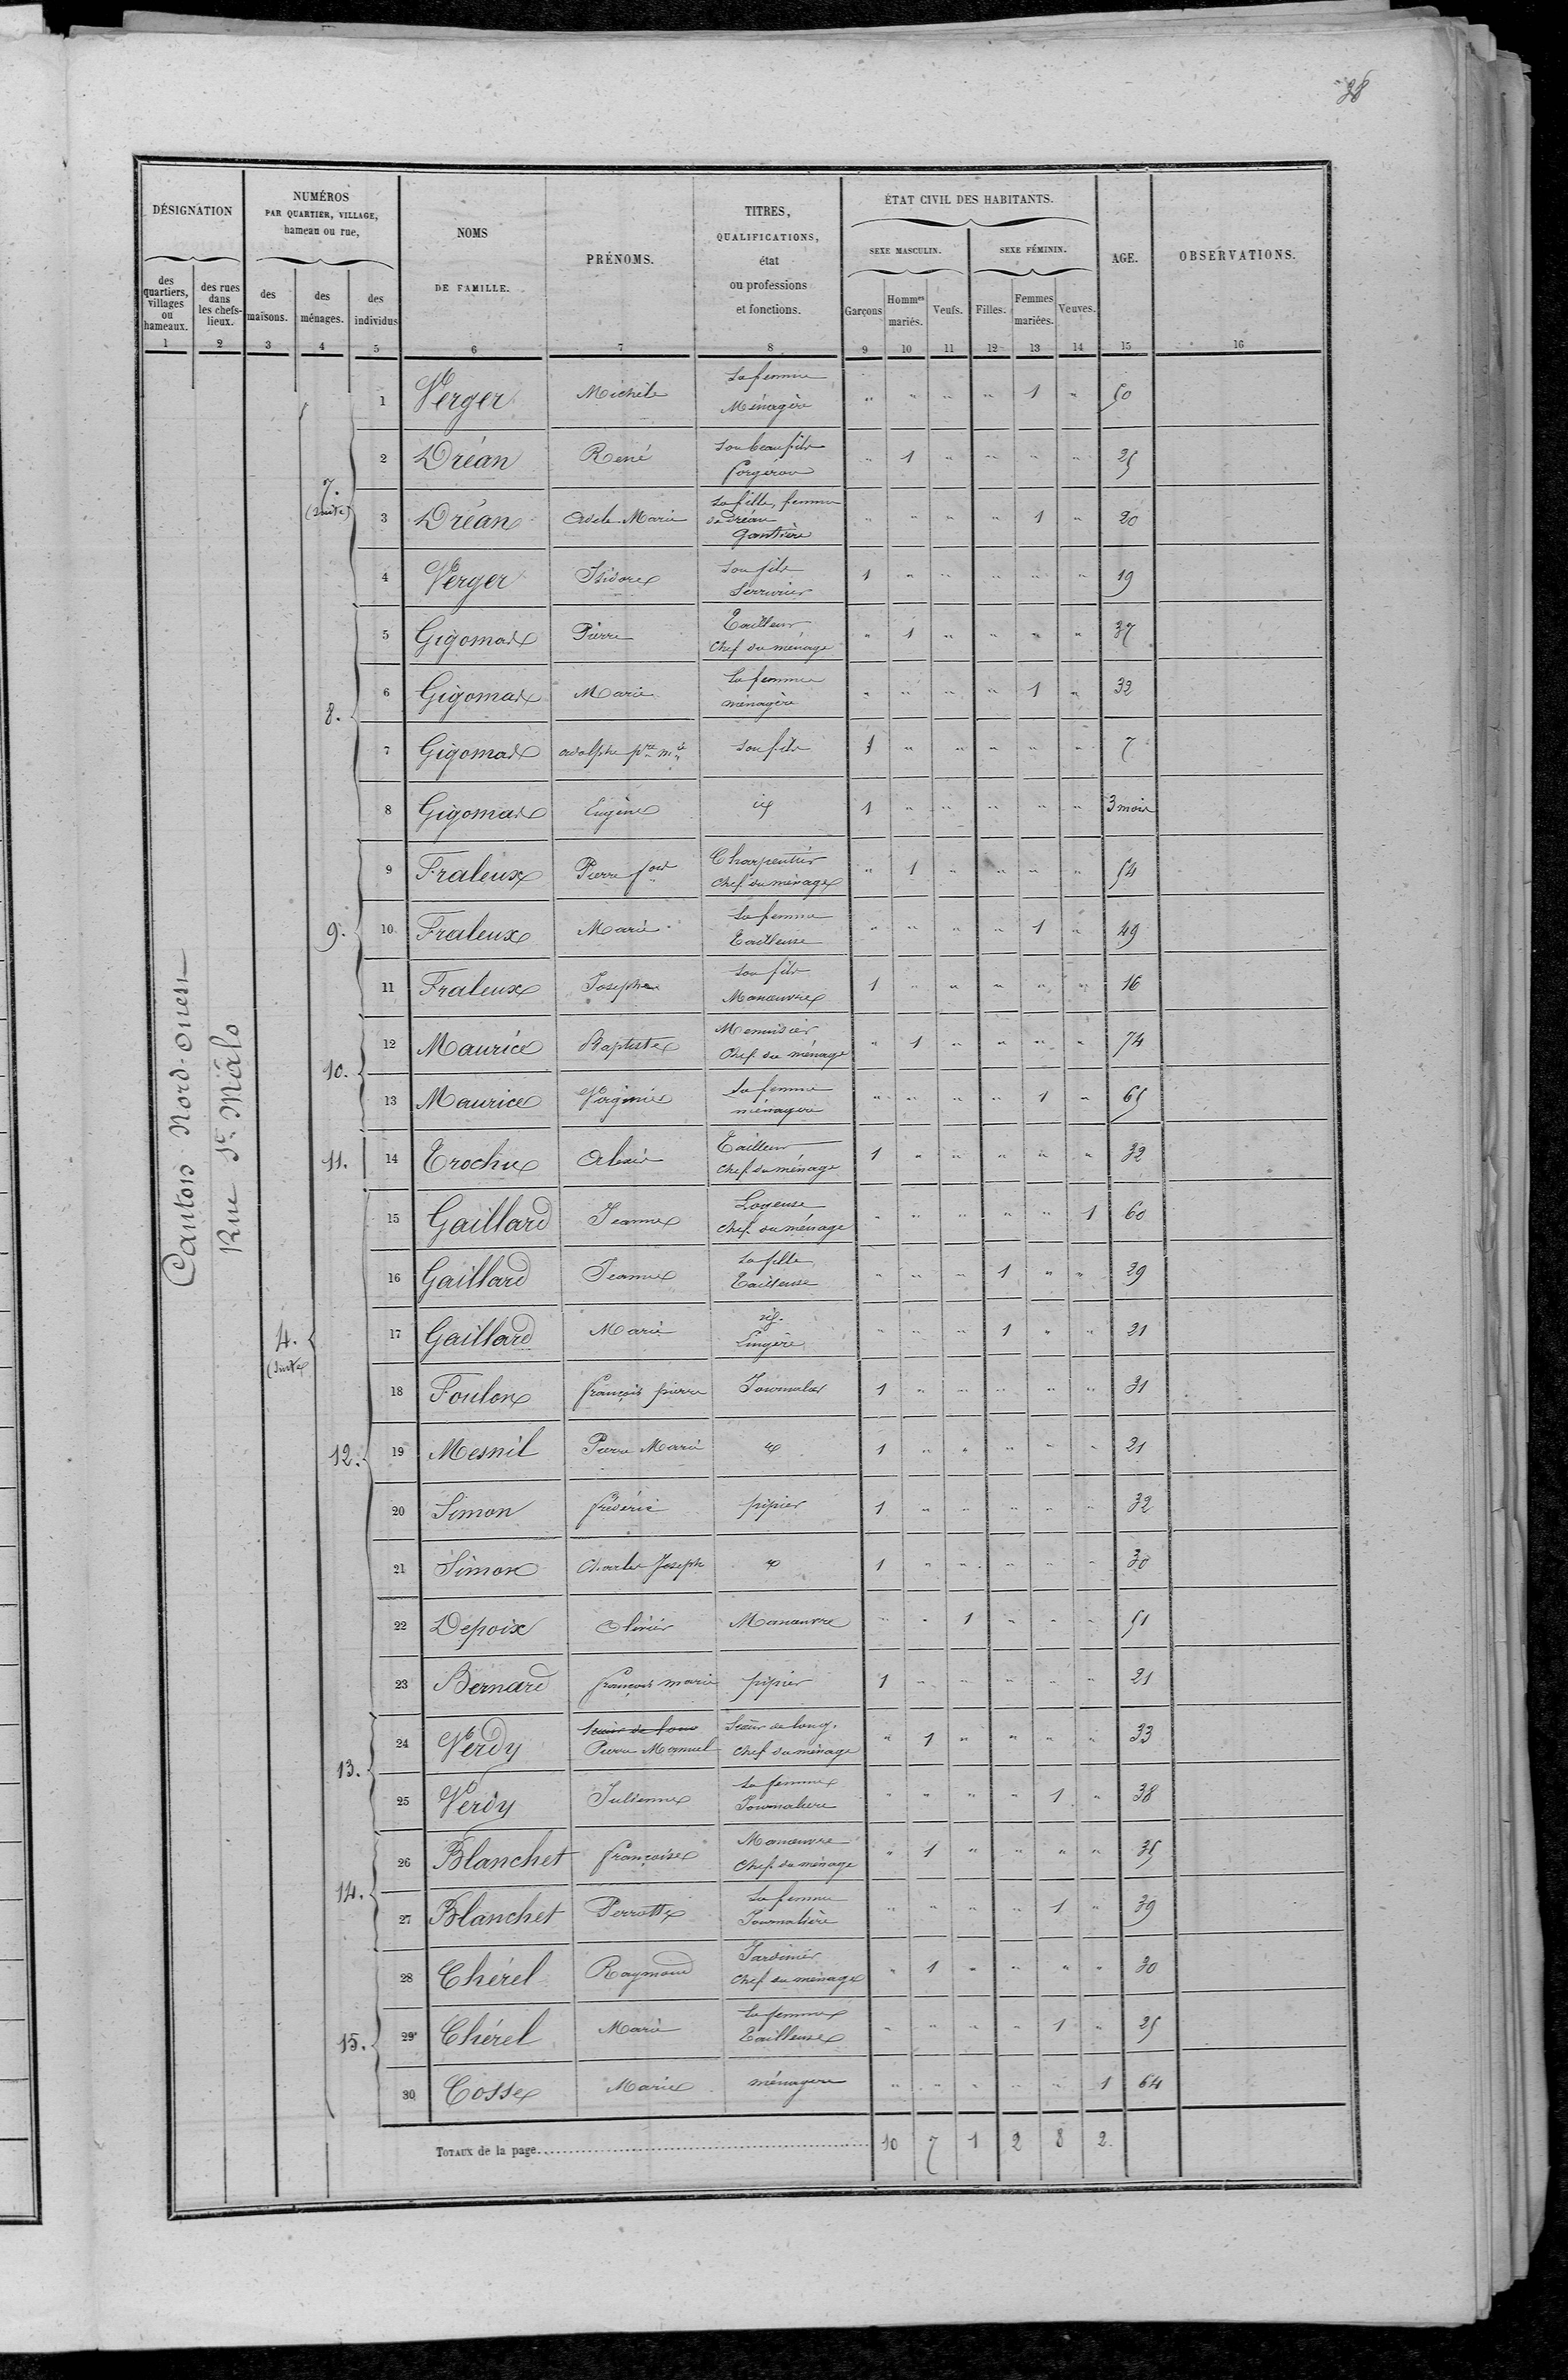 38
DÉSIGNATION
NUMÉROS
PAR QUARTIER, VILLAGE,
hameau ou rue,
NOMS
DE FAMILLE.
PRÉNOMS.
TITRES,
QUALIFICATIONS,
état
ou professions
et fonctions.
ÉTAT CIVIL DES HABITANTS.
SEXE MASCULIN.
SEXE FÉMININ.
AGE.
OBSERVATIONS.
des quartiers, villages ou hameaux.
des rues dans les chefs-lieux.
des maisons.
des ménages.
des individus
Garçons
Hommes mariés.
Veufs.
Filles.
Femmes mariées.
Veuves.
1 2 3 4 5 6 7 8 9 10 11 12 13 14 15 16
Canton Nord-Ouest
Rue St. Mâlo
4.
(Suite
7.
(Suite)
1 Verger Michele Sa femme Ménagère " " " " 1 " 50
2 Dréan René Son beau fils forgeron " 1 " " " " 25
3 Dréan Adele Marie Sa fille, femme de Dréan Gantière " " " " 1 " 20
4 Verger Isidore Son fils Serrurier 1 " " " " " 19
8.
5 Gigomas Pierre Tailleur Chef du ménage " 1 " " " " 37
6 Gigomas Marie Sa femme ménagère " " " " 1 " 32
7 Gigomas adolphe pre mie Son fils 1 " " " " " 7
8 Gigomas Eugène id 1 " " " " " 3 mois
9.
9 Fraleux Pierre Charpentier Chef du ménage " 1 " " " " 54
10 Fraleux Marie Sa femme Tailleuse " " " " 1 " 49
11 Fraleux Joseph Son fils Manoeuvre 1 " " " " " 16
10.
12 Maurice Baptiste Menuisier Chef du ménage " 1 " " " " 74
13 Maurice Virginie Sa femme ménagère " " " " 1 " 65
11.
14 Trochu Alexis Tailleur Chef du ménage 1 " " " " " 32
12.
15 Gaillard Jeanne Logeuse Chef du ménage " " " " " 1 60
16 Gaillard Jeanne Sa fille Tailleuse " " " 1 " " 29
17 Gaillard Marie id. Lingère " " " 1 " " 21
18 Foulon françois pierre Journalier 1 " " " " " 31
19 Mesnil Pierre Marie id 1 " " " " " 21
20 Simon frédéric pipier 1 " " " " " 32
21 Simon Charles Joseph id 1 " " " " " 30
22 Depoix Olivier Manoeuvre " " 1 " " " 51
23 Bernard françois marie pipier 1 " " " " " 21
13.
24 Verdy Scieur de long Pierre Manuel Scieur de long. Chef du ménage " 1 " " " " 33
25 Verdy Julienne Sa femme Journalière " " " " 1 " 38
14.
26 Blanchet françoise Manoeuvre Chef du ménage " 1 " " " " 35
27 Blanchet Perrotte Sa femme Journalière " " " " 1 " 39
15.
28 Chérel Raymond Jardinier Chef du ménage " 1 " " " " 30
29 Chérel Marie Sa femme Tailleuse " " " " 1 " 25
30 Cosse Marie ménagère " " " " " 1 64
TOTAUX de la page 10 7 1 2 8 2.